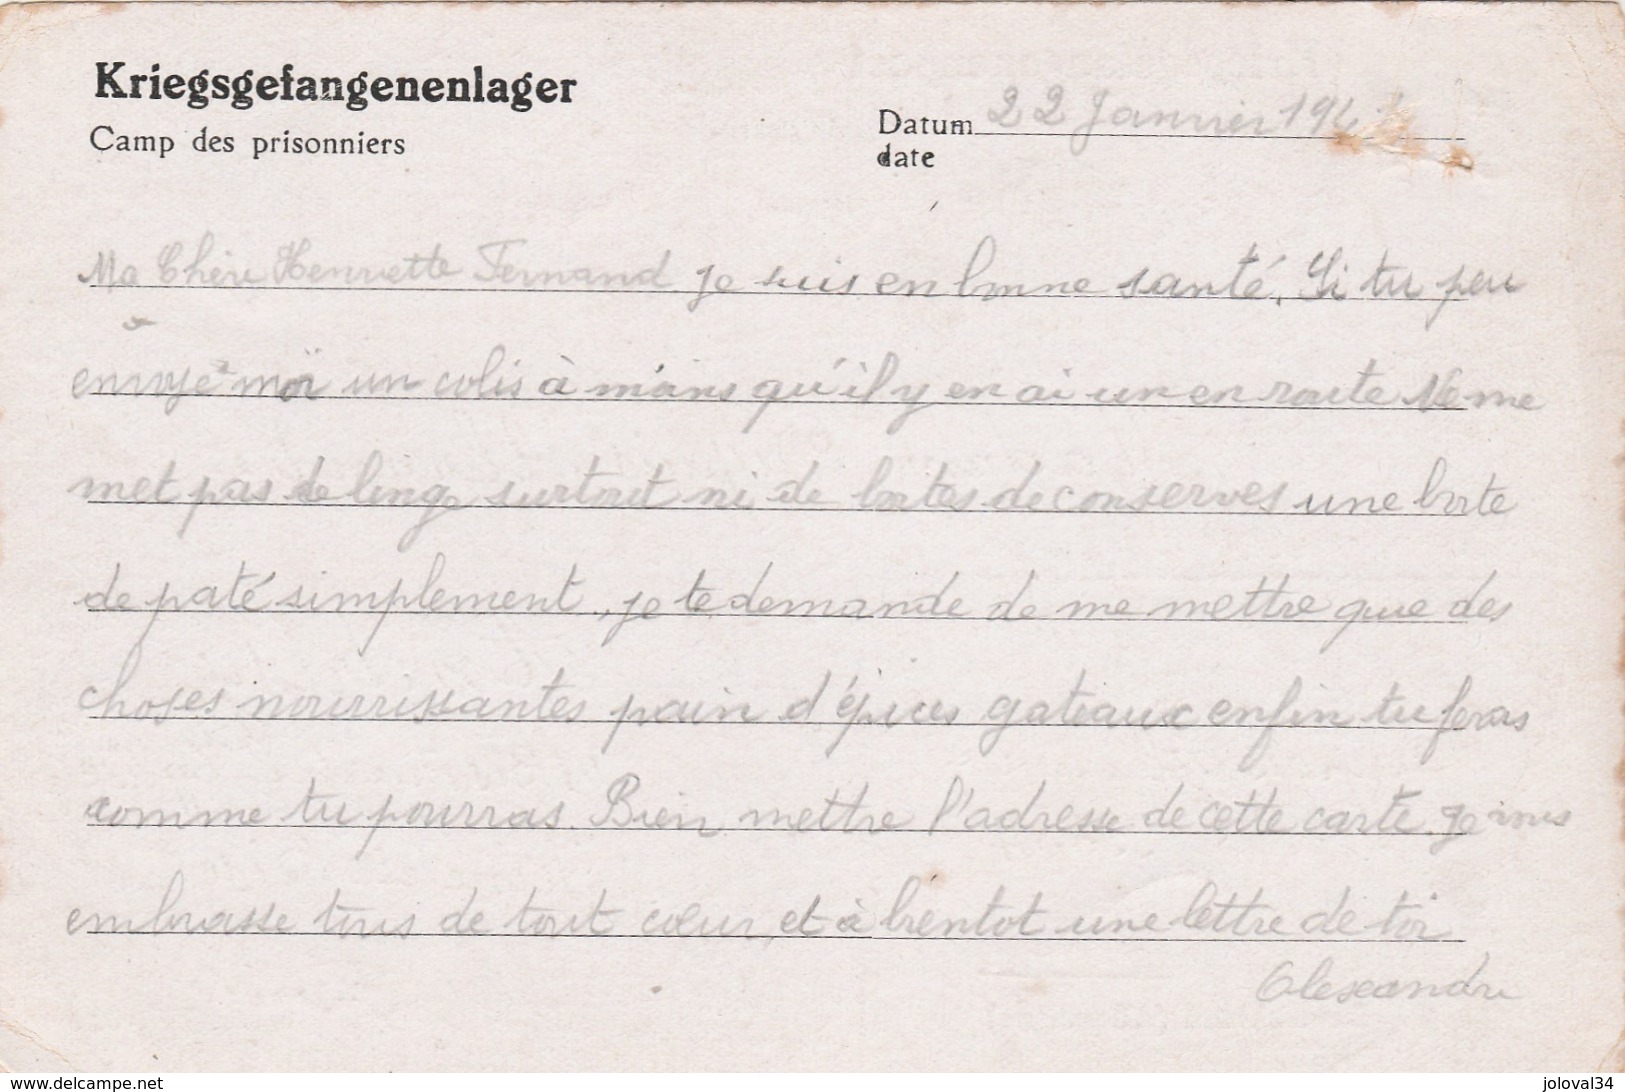 Kriegsgefangenenlager
Camp des prisonniers
Datum 22 Janvier 194
date
Ma Chère Henriette Fernand je suis en bonne santé. Si tu peu
envoye moi un colis à moins qu'il y en ai un en route Ne me
met pas de linge surtout ni de boites de conserves une boite
de paté simplement, je te demande de me mettre que des
choses nourrissantes pain d'épices gateaux enfin tu feras
comme tu pourras. Bien mettre l'adresse de cette carte. Je vous
embrasse tous de tout cœur, et à bientot une lettre de toi
Alexandre
www.delcampe.net
joloval34